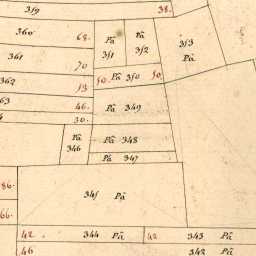 319 38.
360 68. Pâ Pâ 313
351 352 Pâ
361 70
50. Pâ 350 50
362 53
63 46. Pâ 349
4 30.
Pâ Pâ 348
346
Pâ 347
86.
345 Pâ
66.
42. 344 Pâ 42 343 Pâ
46 342 Pâ